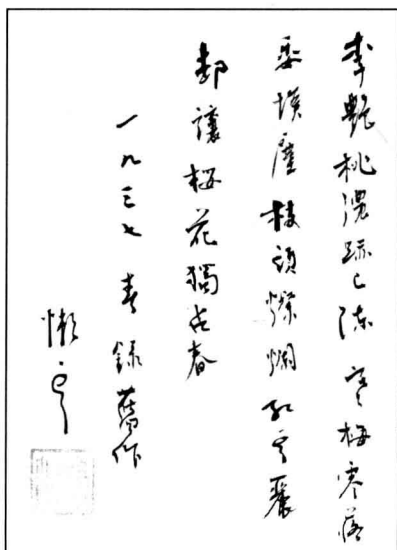 李艷桃濃跡已陳 梅寒落
委埃塵枝頭燦爛紅雲
讓花獨占春
一九三七春錄舊作
懶